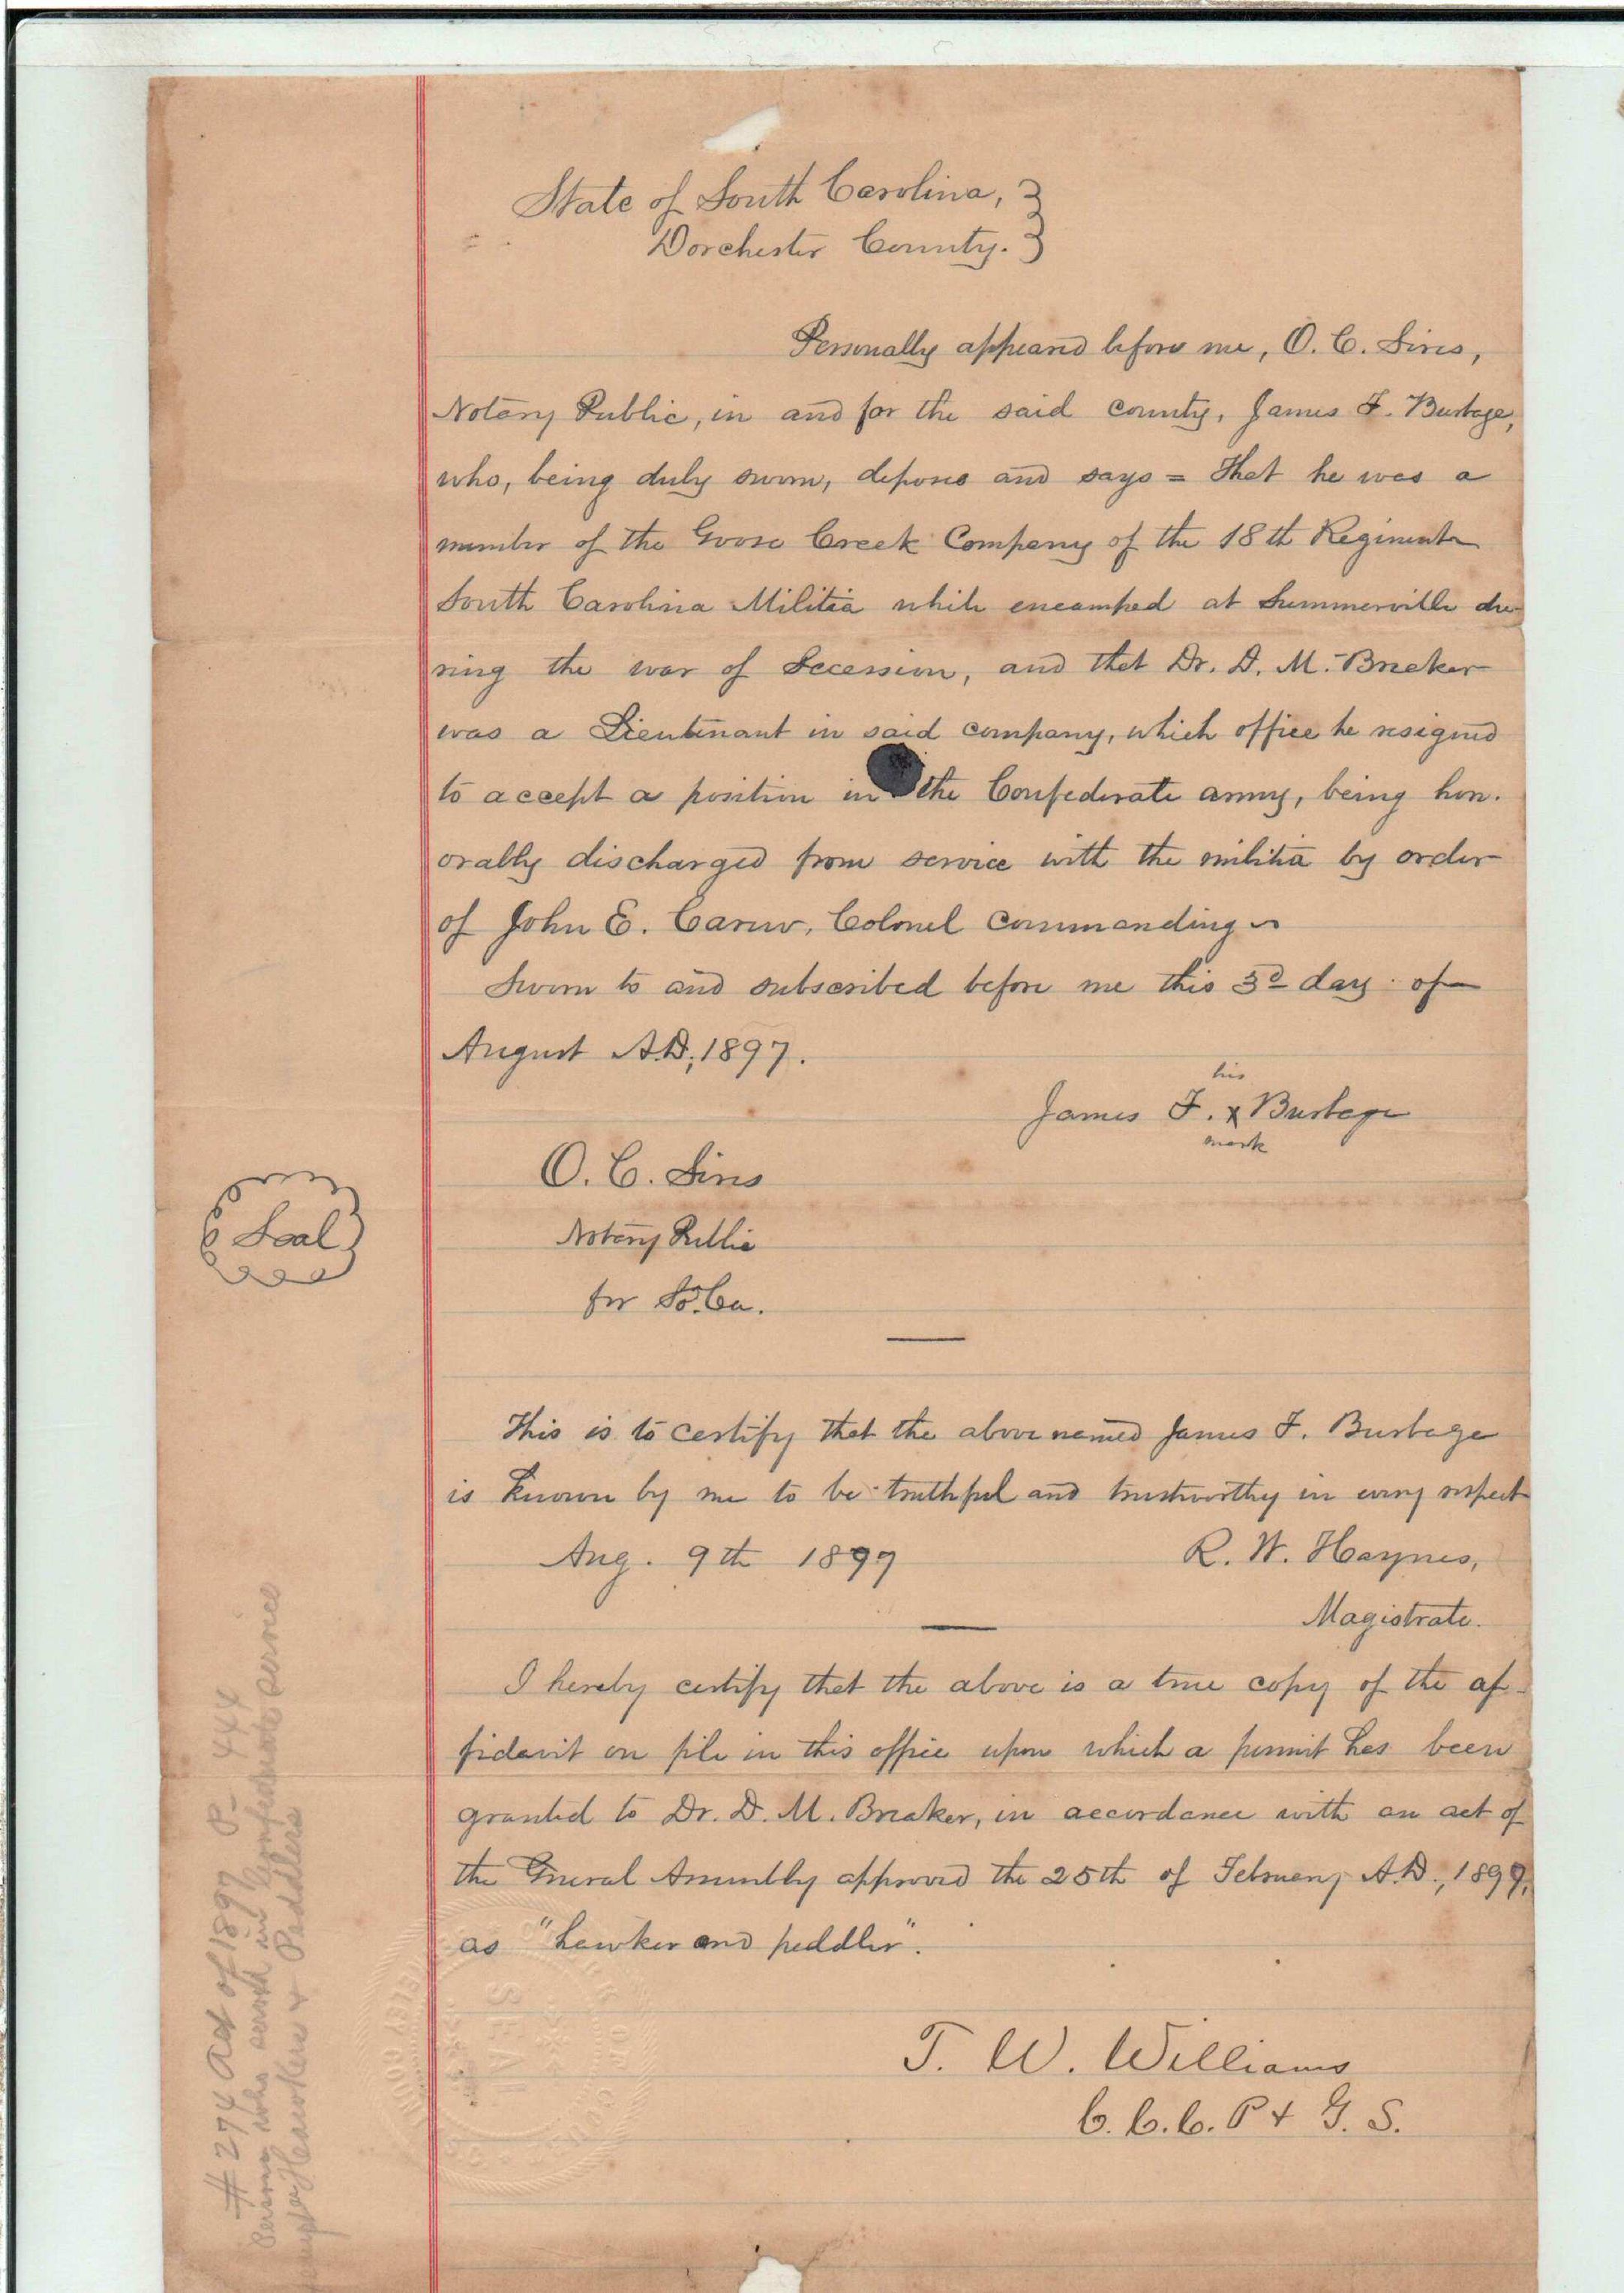 State of South Carolina, }
Dorchester County. }
Personally appeared before me, O. C. Sires,
Notary Public, in and for the said county, James F. Burbage,
who, being duly sworn, deposes and says = That he was a
member of the Goose Creek Company of the 18th Regiment
South Carolina Militia while encamped at Summerville du-
ring the war of Secession, and that Dr. D. M. Breaker
was a Lieutenant in said company, which office he resigned
to accept a position in the Confederate army, being hon-
orally discharged from service with the militia by order
of John E. Carew, Colonel Commanding
Sworn to and subscribed before me this 3d day of
August A.D., 1897.
his
James F. x Burbage
mark
O. C. Sires
Notary Public
for So. Ca.
Seal
This is to certify that the above named James F. Burbage
is known by me to be truthful and trustworthy in every respect
Aug. 9th 1897
R. W. Haynes,
Magistrate.
I hereby certify that the above is a true copy of the af-
fidavit on file in this office upon which a permit has been
granted to Dr. D. M. Breaker, in accordance with an act of
the General Assembly approved the 25th of February A.D., 1897,
as "hawker and peddler".
T. W. Williams
C. C. C. P & G. S.
# 274 Act of 1897 P- 444
Persons who served in Confederate service
Hawkers & Peddlers